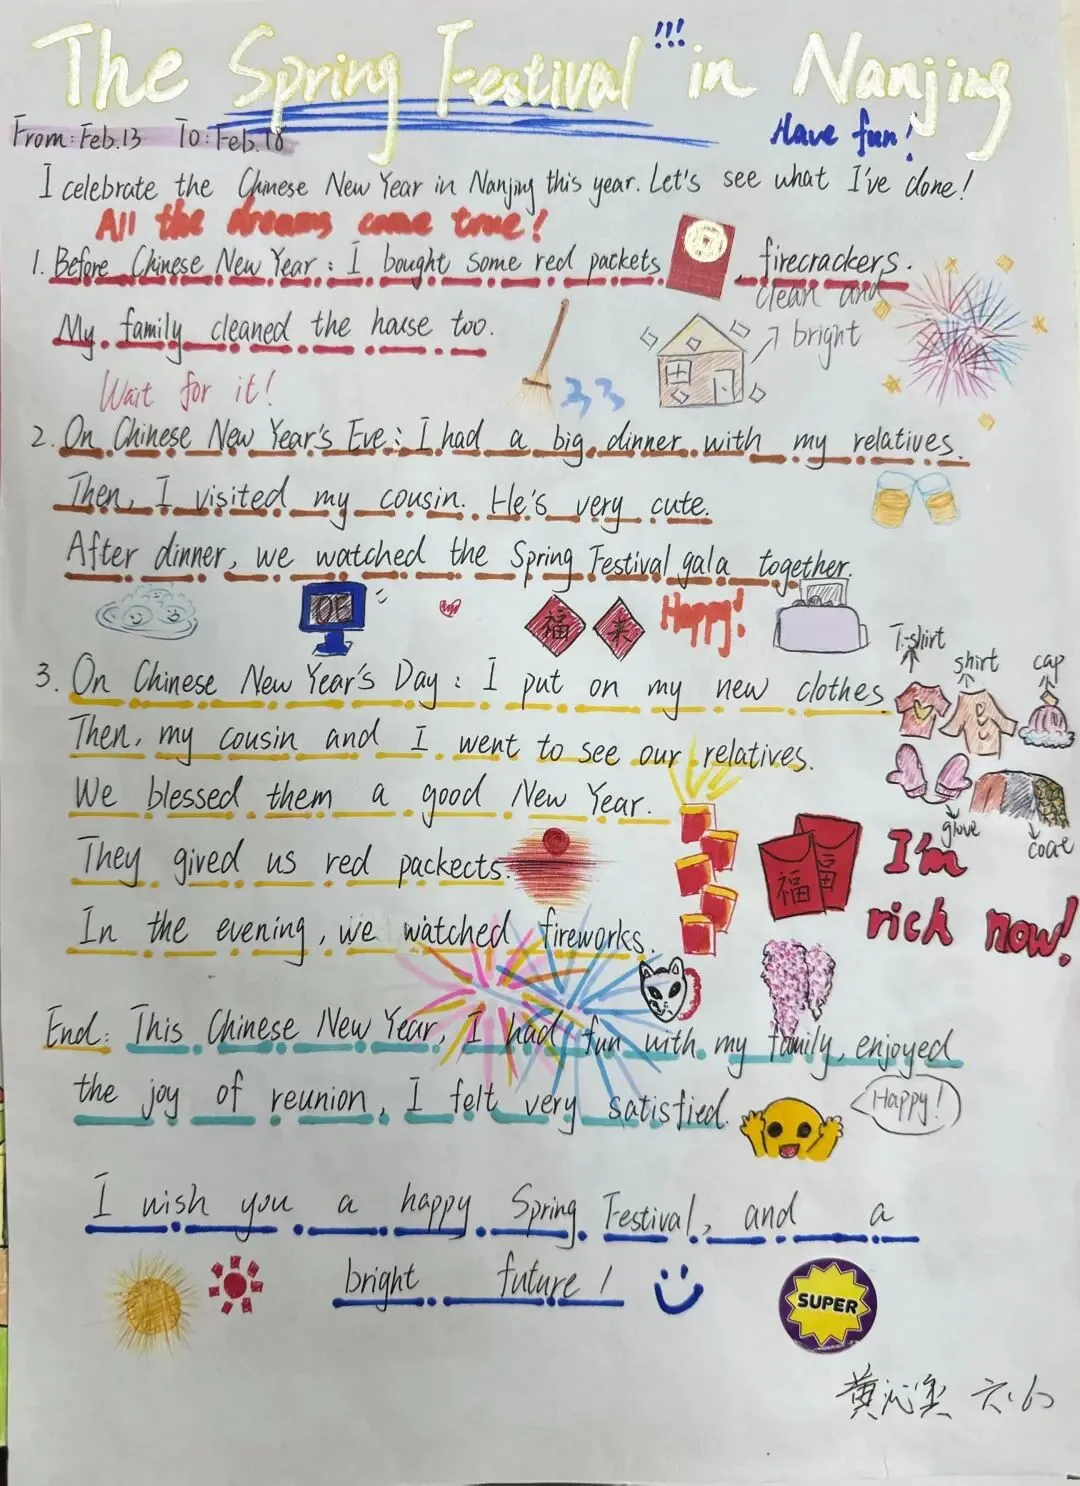 The Spring Festival!!! in Nanjing
From: Feb.13 To: Feb.18
Have fun!
I celebrate the Chinese New Year in Nanjing this year. Let's see what I've done!
All the dreams come true!
1. Before Chinese New Year: I bought some red packets, firecrackers.
clean and
bright
My family cleaned the house too.
Wait for it!
2. On Chinese New Year's Eve: I had a big dinner with my relatives.
Then, I visited my cousin. He's very cute.
After dinner, we watched the Spring Festival gala together.
福 来
Happy!
T-shirt
shirt
cap
3. On Chinese New Year's Day: I put on my new clothes.
Then, my cousin and I went to see our relatives.
We blessed them a good New Year.
glove
coat
They gived us red packects.
福 福
I'm
rich now!
In the evening, we watched fireworks.
End: This Chinese New Year, I had fun with my family, enjoyed
the joy of reunion, I felt very satisfied.
Happy!
I wish you a happy Spring Festival, and a
bright future!
SUPER
黄沁 六.6